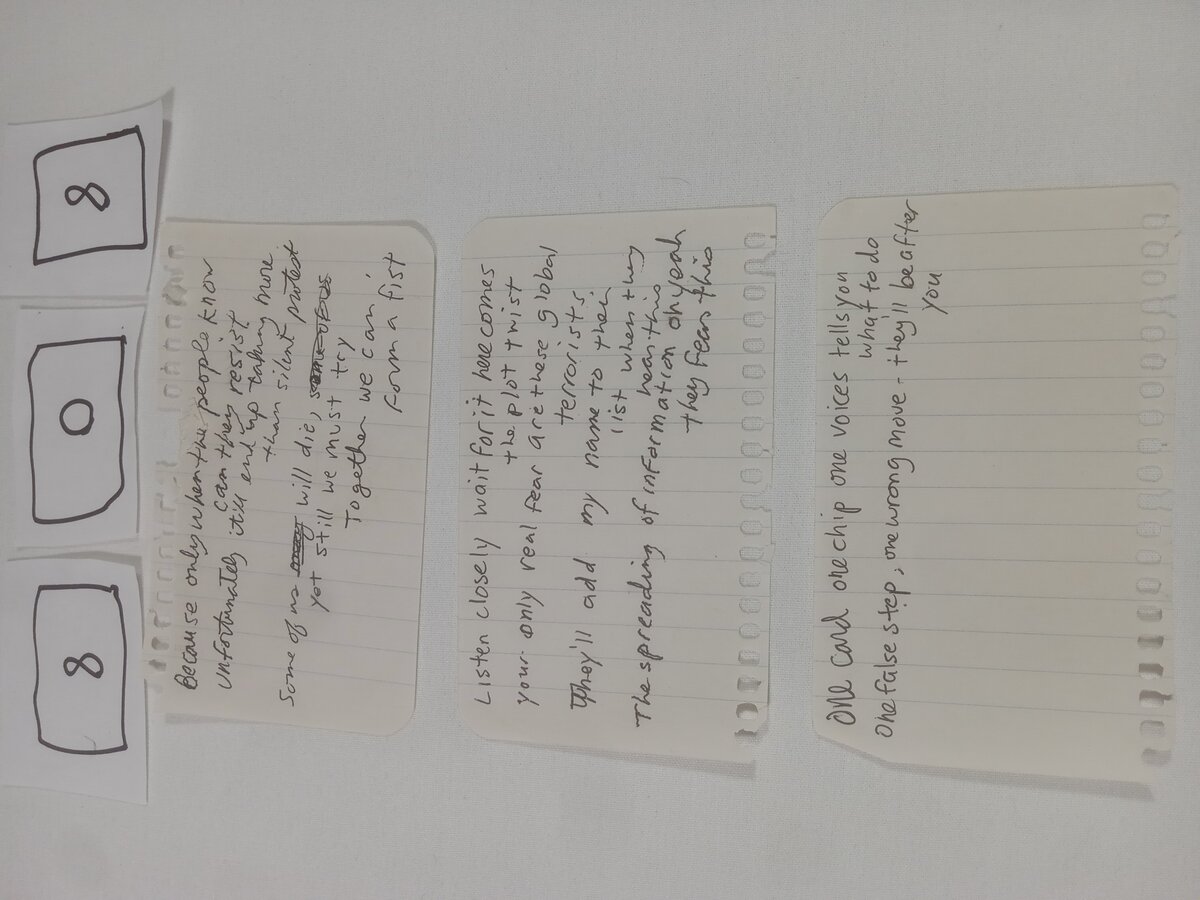 8 0 8
Because only when the people know
can they resist
Unfortunately it'll end up taking more
than silent protest
Some of us will die,
yet still we must try
Together we can
form a fist
Listen closely wait for it here comes
the plot twist
your only real fear are these global
terrorists
They'll add my name to their
list when they
hear this
The spreading of information oh yeah
they fear this
One card one chip one voices tells you
what to do
One false step, one wrong move - they'll be after
you